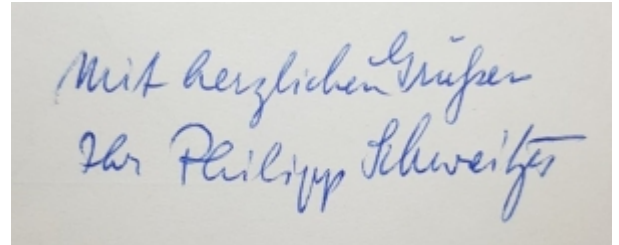 Mit herzlichen Grüßen
Ihr Philipp Schweitzer